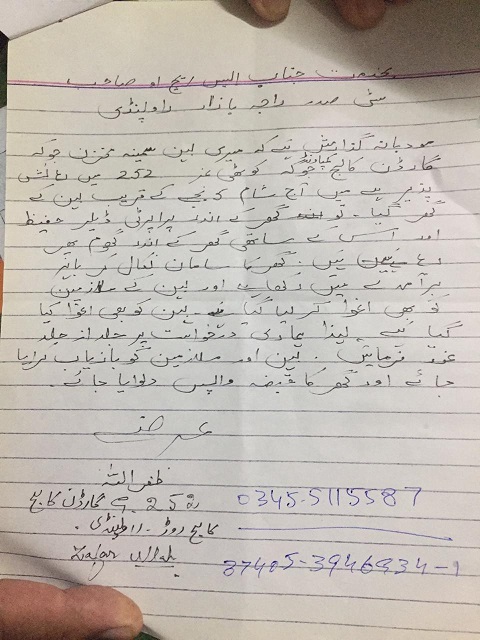 بخدمت جناب ایس ایچ او صاحب
سٹی صدر راجہ بازار راولپنڈی
مودبانہ گذارش ہے کہ میری بہن سمینہ مخزن جو کہ
گارڈن کالج کمپاونڈ جو کہ کوٹھی نمبر 252 میں رہائشی
پذیر ہے میں آج شام 5 بجے کے قریب بہن کے
گھر گیا۔ تو گھر کے اندر پراپرٹی ڈیلر حفیظ
اور اسکے ساتھی گھر کے اندر گھوم پھر
رہے ہیں۔ گھر کا سامان نکال کر باہر
برآمدے میں رکھا ہے اور بہن کے ملازمین
کو بھی اغوا کر لیا گیا ہے۔ بہن کو بھی اغوا کیا
گیا ہے۔ لہذا ہماری درخواست پر جلد از جلد
غور فرمائیں۔ بہن اور ملازمین کو بازیاب کرایا
جائے اور گھر کا قبضہ واپس دلوایا جائے۔
عرضے
ظفر اللہ
گارڈن کالج 0345-5115587
کالج روڑ۔ راولپنڈی۔
Zafar ullah 37405-3946934-1